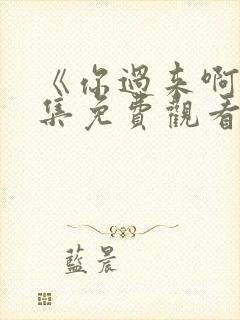 《你過来啊
集免費觀看
藍晨